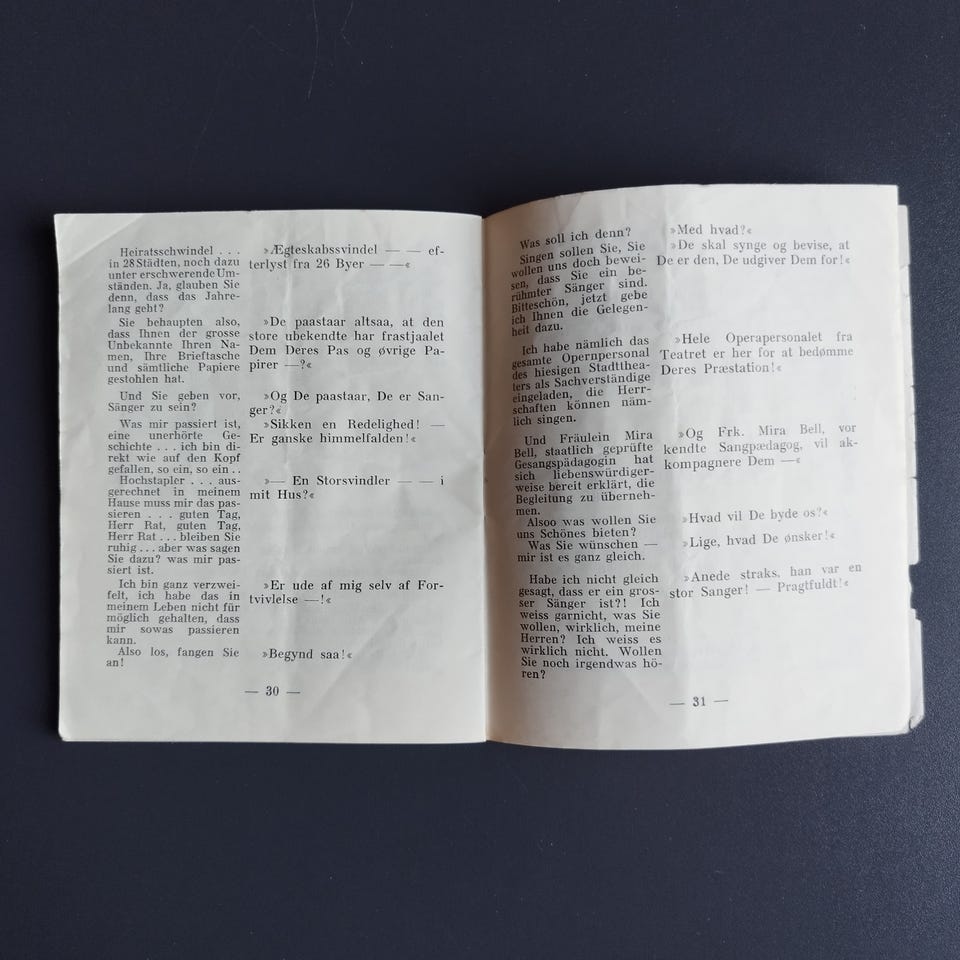 Heiratsschwindel . . .
in 28 Städten, noch dazu
unter erschwerende Um-
ständen. Ja, glauben Sie
denn, dass das Jahre-
lang geht?
Sie behaupten also,
dass Ihnen der grosse
Unbekannte Ihren Na-
men, Ihre Brieftasche
und sämtliche Papiere
gestohlen hat.
Und Sie geben vor,
Sänger zu sein?
Was mir passiert ist,
eine unerhörte Ge-
schichte . . . ich bin di-
rekt wie auf den Kopf
gefallen, so ein, so ein . .
Hochstapler . . . aus-
gerechnet in meinem
Hause muss mir das pas-
sieren . . . guten Tag,
Herr Rat, guten Tag,
Herr Rat . . . bleiben Sie
ruhig . . . aber was sagen
Sie dazu? was mir pas-
siert ist.
Ich bin ganz verzwei-
felt, ich habe das in
meinem Leben nicht für
möglich gehalten, dass
mir sowas passieren
kann.
Also los, fangen Sie
an!
»Ægteskabssvindel — — ef-
terlyst fra 26 Byer — —«
»De paastaar altsaa, at den
store ubekendte har frastjaalet
Dem Deres Pas og øvrige Pa-
pirer —?«
»Og De paastaar, De er San-
ger?«
»Sikken en Redelighed! —
Er ganske himmelfalden!«
»— En Storsvindler — — i
mit Hus?«
»Er ude af mig selv af For-
tvivlelse —!«
»Begynd saa!«
— 30 —
Was soll ich denn?
Singen sollen Sie, Sie
wollen uns doch bewei-
sen, dass Sie ein be-
rühmter Sänger sind.
Bitteschön, jetzt gebe
ich Ihnen die Gelegen-
heit dazu.
Ich habe nämlich das
gesamte Opernpersonal
des hiesigen Stadtthea-
ters als Sachverständige
eingeladen, die Herr-
schaften können näm-
lich singen.
Und Fräulein Mira
Bell, staatlich geprüfte
Gesangspädagogin hat
sich liebenswürdiger-
weise bereit erklärt, die
Begleitung zu überneh-
men.
Alsoo was wollen Sie
uns Schönes bieten?
Was Sie wünschen —
mir ist es ganz gleich.
Habe ich nicht gleich
gesagt, dass er ein gros-
ser Sänger ist?! Ich
weiss garnicht, was Sie
wollen, wirklich, meine
Herren? Ich weiss es
wirklich nicht. Wollen
Sie noch irgendwas hö-
ren?
»Med hvad?«
»De skal synge og bevise, at
De er den, De udgiver Dem for!«
»Hele Operapersonalet fra
Teatret er her for at bedømme
Deres Præstation!«
»Og Frk. Mira Bell, vor
kendte Sangpædagog, vil ak-
kompagnere Dem —«
»Hvad vil De byde os?«
»Lige, hvad De ønsker!«
»Anede straks, han var en
stor Sanger! — Pragtfuldt!«
— 31 —